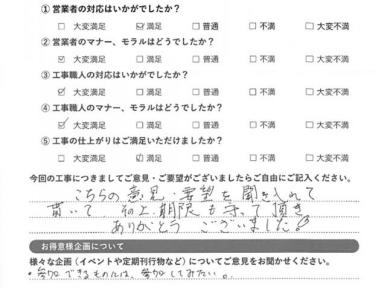 ① 営業者の対応はいかがでしたか?
□ 大変満足 ☑ 満足 □ 普通 □ 不満 □ 大変不満
② 営業者のマナー、モラルはどうでしたか?
☑ 大変満足 □ 満足 □ 普通 □ 不満 □ 大変不満
③ 工事職人の対応はいかがでしたか?
☑ 大変満足 □ 満足 □ 普通 □ 不満 □ 大変不満
④ 工事職人のマナー、モラルはどうでしたか?
☑ 大変満足 □ 満足 □ 普通 □ 不満 □ 大変不満
⑤ 工事の仕上がりはご満足いただけましたか?
□ 大変満足 ☑ 満足 □ 普通 □ 不満 □ 大変不満
今回の工事につきましてご意見・ご要望がございましたらご自由にご記入ください。
こちらの意見・要望を聞き入れて
貰いて、その上期限も守って頂き
ありがとうございました!
お得意様企画について
様々な企画(イベントや定期刊行物など)についてご意見をお聞かせください。
・参加できるものには、参加してみたい。